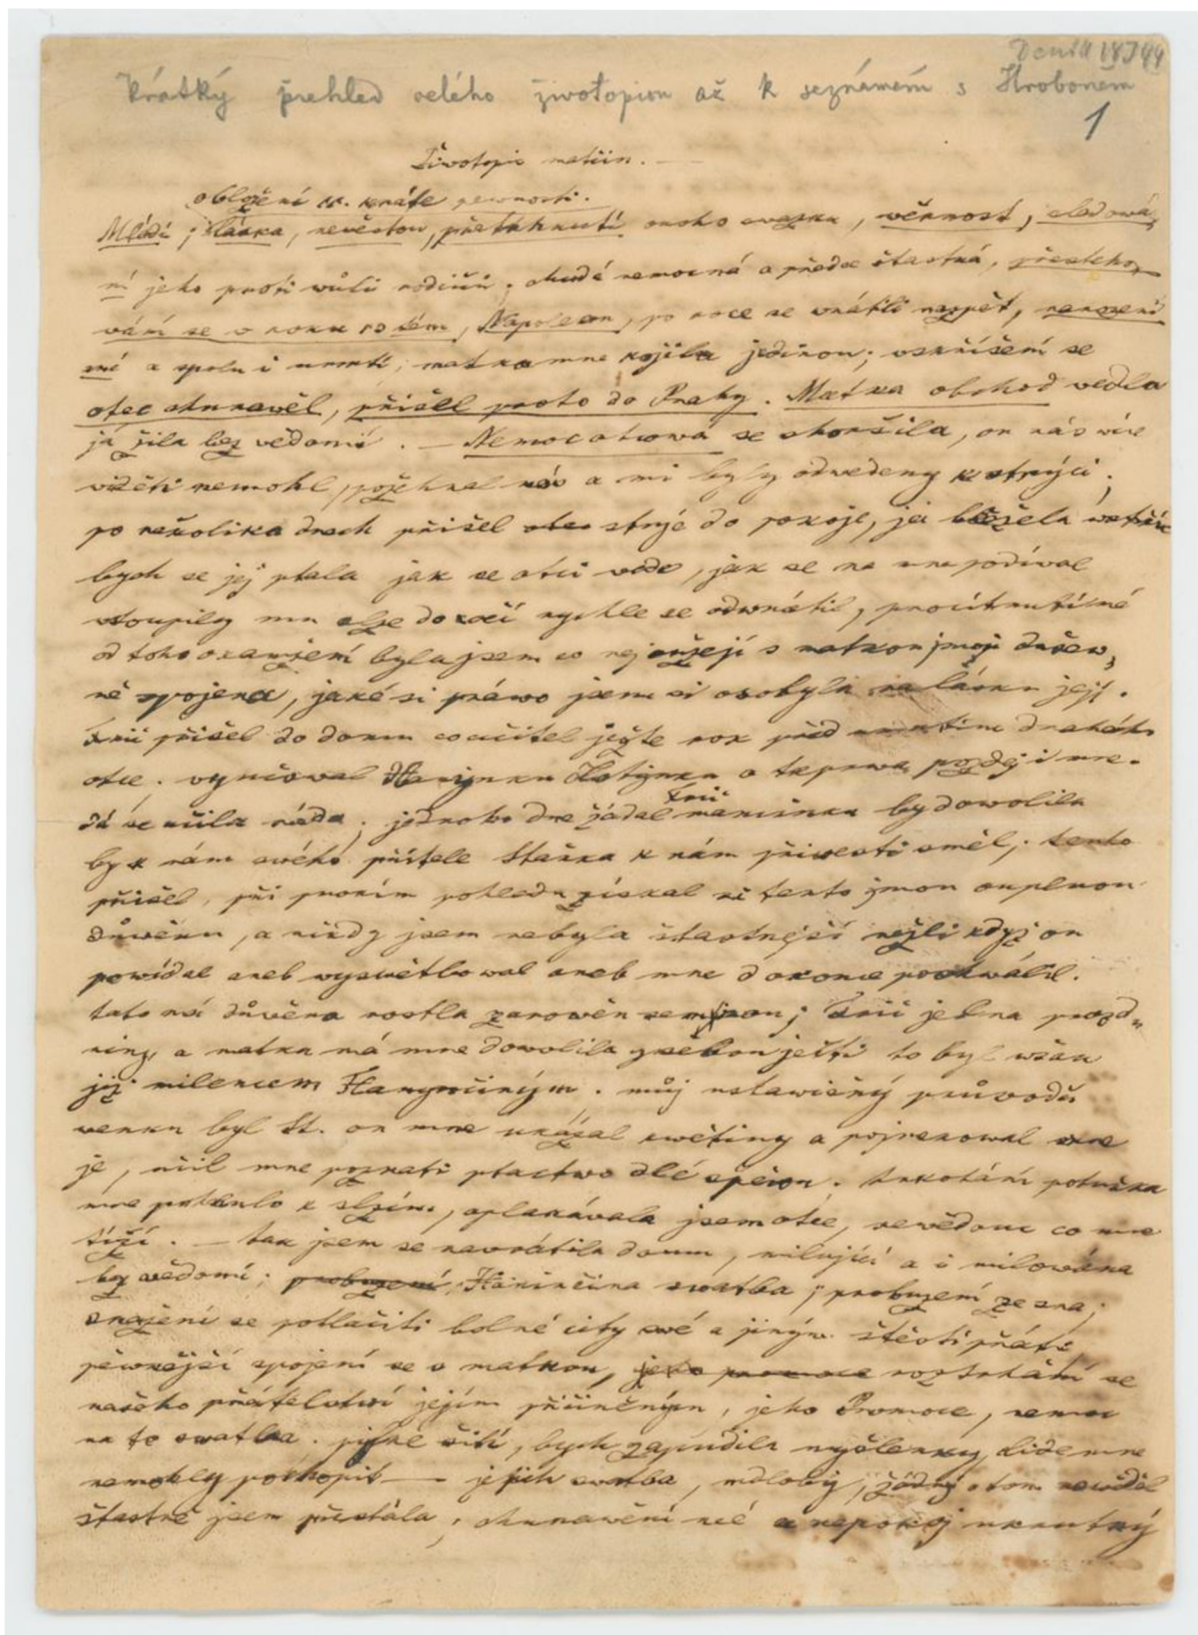 Deník 1844
Krátký přehled celého životopisu až k seznámení s Hroboněm
1
Životopis matčin.
obležení pewnosti.
Mládí; láska, newěstou, přetrhnutí onoho swazku, wěrnost, sledowá,
ní jeho proti wůli rodičů; chudé nemocná a předce šťastná, přestěho,
wání se w roku, Napoleon, po roce se wrátili nazpět, narození
mé a spolu i umrtí; matka mne kojila jedinou; wzkříšení se
otec churawěl, přišel proto do Prahy. Matka obchod wedla
já žila bez wědomí. — Nemoc otcowa se zhoršila, on nás wíce
widěti nemohl, požehnal nás a mi byly odwedeny k strýci;
po několika dnech přišel strýc do pokoje, já běžela wstříc
bych se jej ptala jak se otci wede, jak se na mne podíwal
wstoupily mu slze do očí rychle se odwrátil, procitnutí mé
od toho okamžení byla jsem co nejaužeji s matkou mojí dušew,
ně spojena, jakési práwo jsem si osobyla na lásku její.
přišel do domu co učitel ještě rok před umrtím drahého
otce. wyučowal Haninku a teprwa pozdej i mne.
Já se učila ráda; jednoho dne žádal maminku by dowolila
by k nám swého přítele Staňka k nám přiwesti směl; tento
přišel, při prwním pohledu získal si tento mou auplnou
důwěru, a nikdy jsem nebyla šťastnější nežli když on
powídal aneb wyswětlowal aneb mne dokonce pochwálil.
tato má důwěra rostla zarowěň se mnou; jel na prázd,
niny a matka má mne dowolila s nimi jeti to byl wšak
již milencem Hanynčiným. můj ustawičný průwodčí
wenku byl St. on mne ukázal kwětiny a pojmenowal mne
je, učil mne poznati ptactwo dlé zpěwu. šukotání potůčka
mne pohnulo k slzím, oplakáwala jsem otce, newědouc co mne
tíží. — tak jsem se nawrátila domu, milující a i milowána
bez wědomí; Haninčina swatba; probuzení ze sna;
snažení se potlačiti bolné city swé a jiným štěstí přáti,
pewnější spojení se s matkou, roztrhání se
našeho přátelstwí jejím přičiněným, jeho Promoce, nemoc
na to swatba. pilné šití, bych zapudila myšlenky, lidé mne
nemohly pochopit — jejich swatba, mdloby, žádný o tom newěděl
šťastně jsem přestála, churawění mé a nepokoj ukrutný